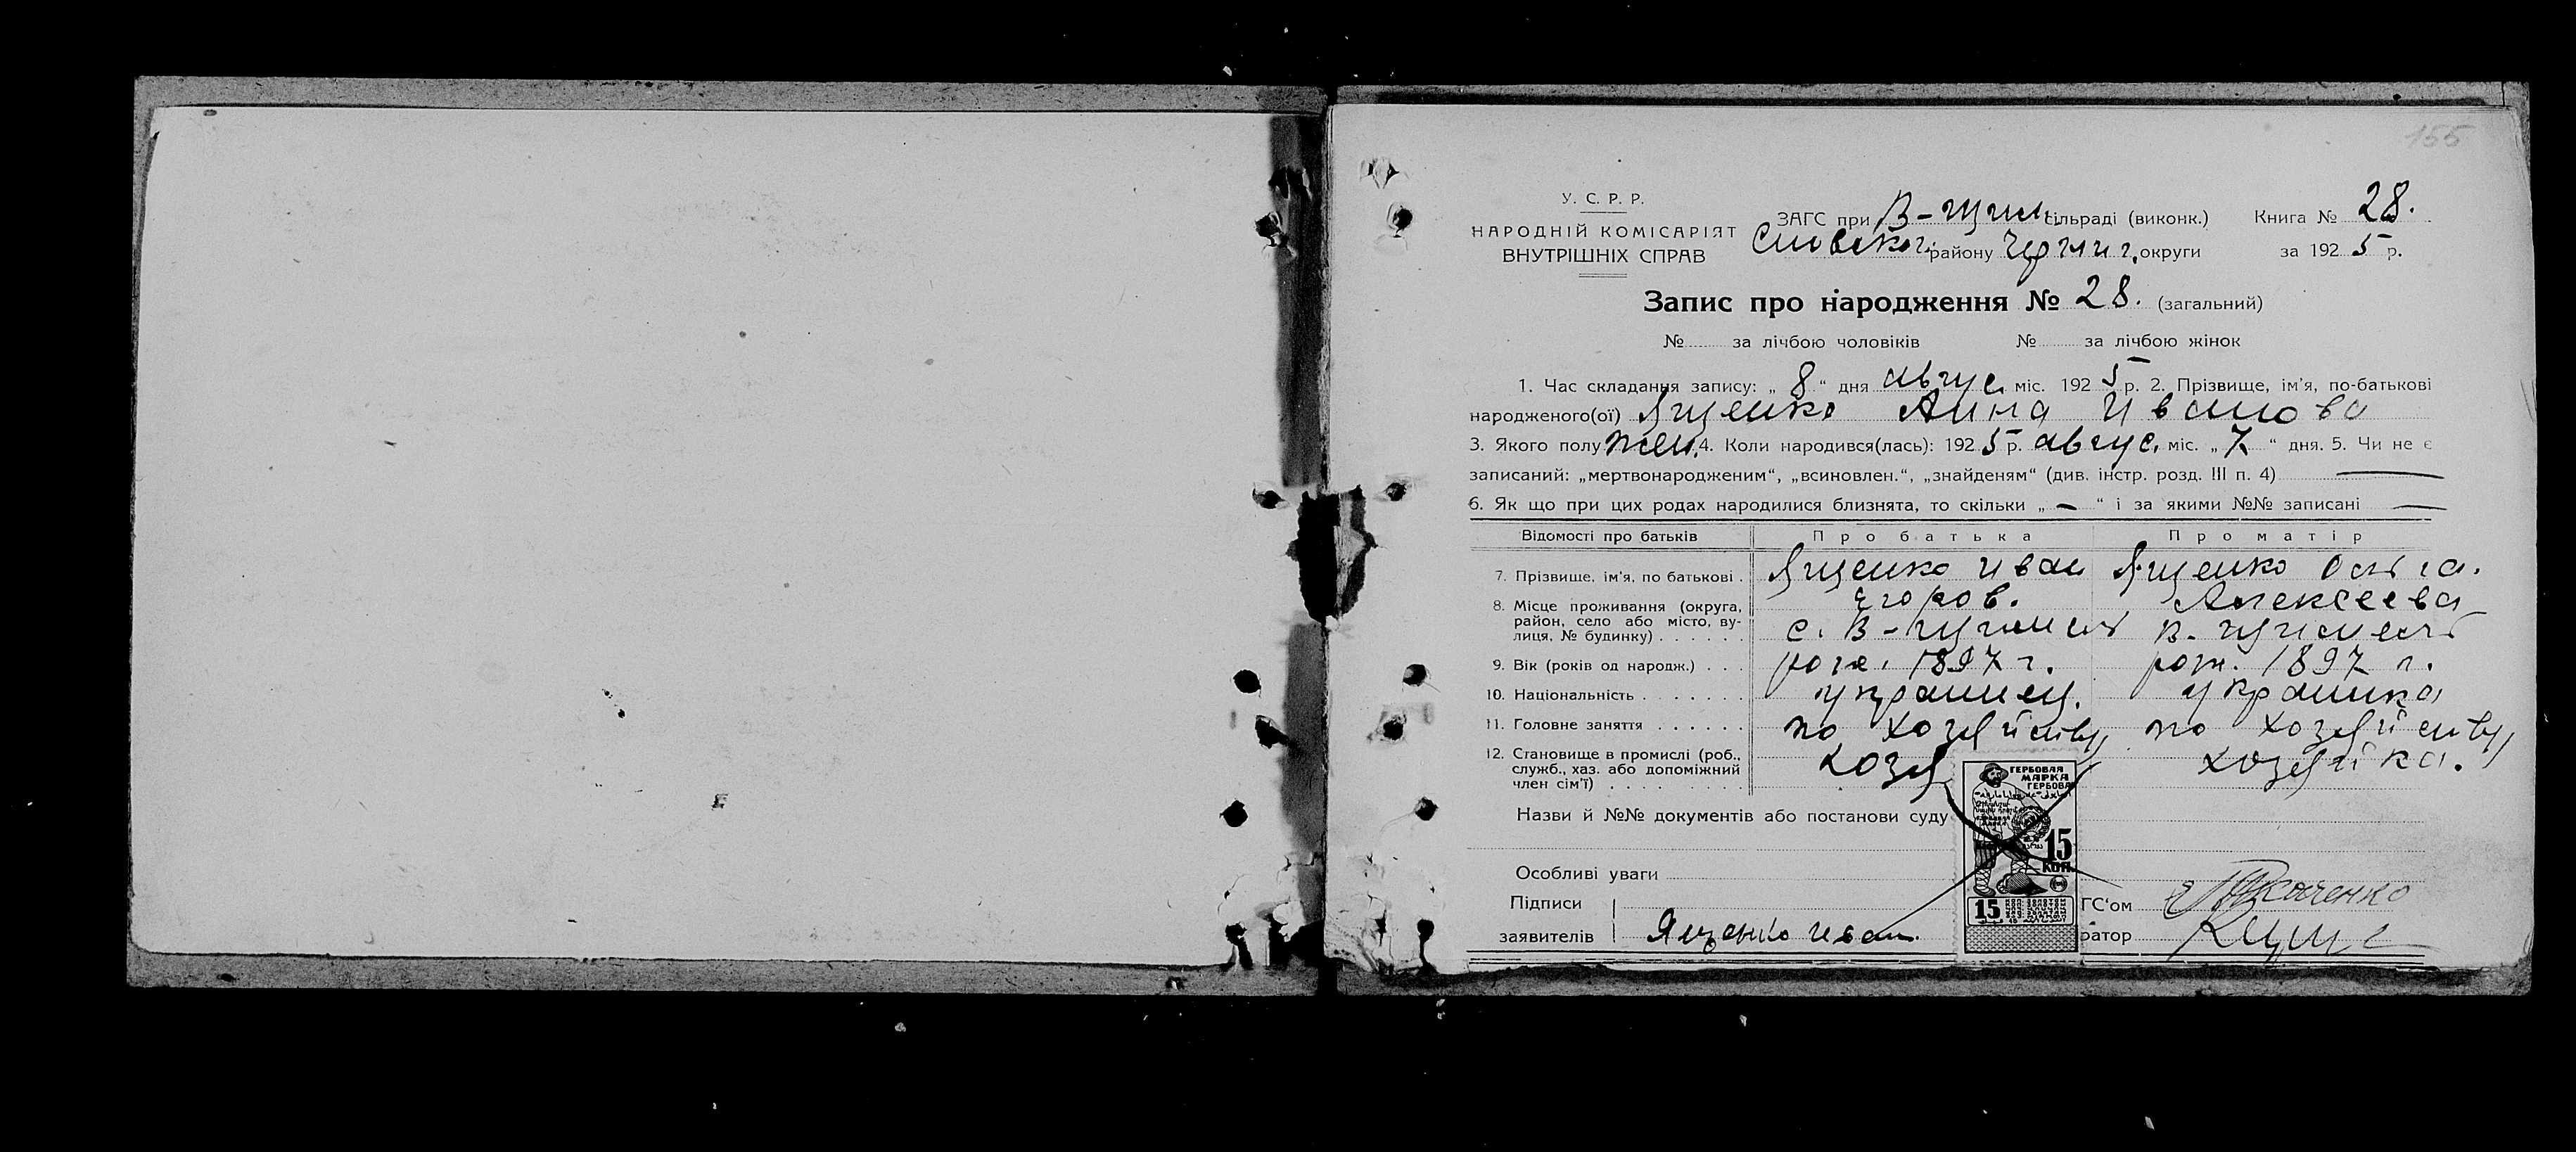 155
У. С. Р. Р.
НАРОДНІЙ КОМІСАРІЯТ
ВНУТРІШНІХ СПРАВ
ЗАГС при В- сільраді (виконк.)
району округи
Книга № 28.
за 1925 р.
Запис про народження № 28. (загальний)
№ за лічбою чоловіків № за лічбою жінок
1. Час складання запису: „ 8 “ дня август міс. 1925 р. 2. Прізвище, ім'я, по-батькові
народженого(ої) Ященко Анна Иванова
3. Якого полу жен. 4. Коли народився(лась): 1925 р. авгус. міс. „ 7 “ дня. 5. Чи не є
записаний: „мертвонародженим“, „всиновлен.“, „знайденям“ (див. інстр. розд. III п. 4) —
6. Як що при цих родах народилися близнята, то скільки „ — “ і за якими №№ записані —
Відомості про батьків Про батька Про матір
7. Прізвище, ім'я, по батькові . Ященко Иван Ященко
Егоров. Алексеева
8. Місце проживання (округа,
район, село або місто, ву-
лиця, № будинку) . . . . . . с. В- В-
9. Вік (років од народж.) . . . рож. 1897 г. рож. 1897 г.
10. Національність . . . . . . . украинец. украинка
11. Головне заняття . . . . . . по хозяйству по хозяйству
12. Становище в промислі (роб.,
служб., хаз. або допоміжний
член сім'ї) . . . . . . . . . хозя хозяйка.
Назви й №№ документів або постанови суду
ГЕРБОВАЯ
МАРКА
ГЕРБОВА
15
КОП
15
Особливі уваги
Підписи
заявителів Ященко Иван
ГС'ом Ткаченко
ратор